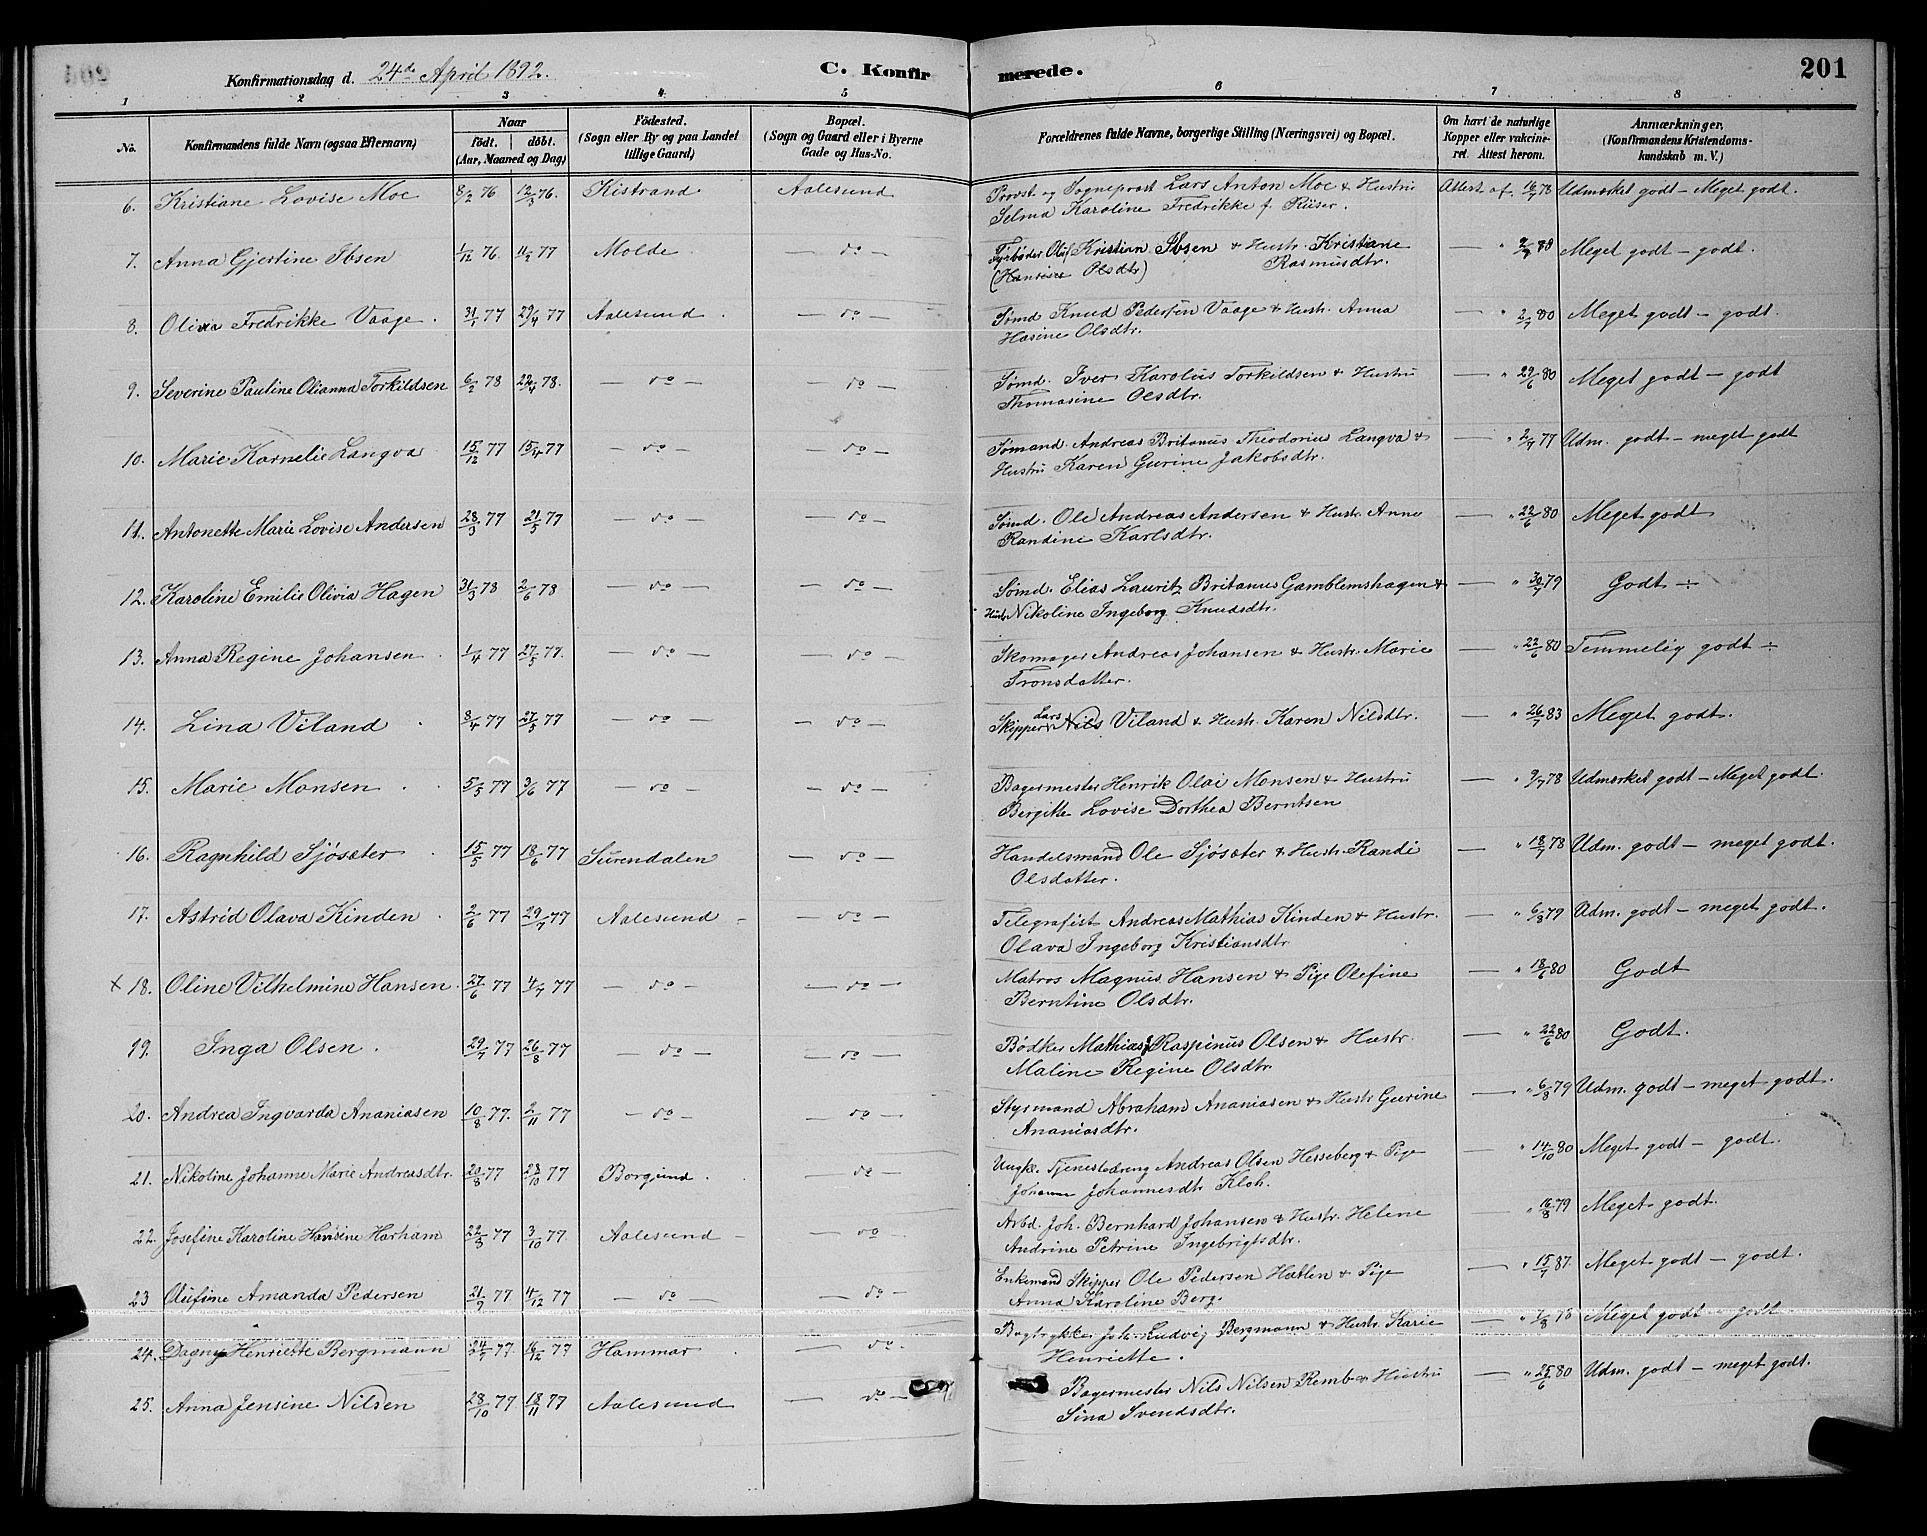 201
Konfirmationsdag d. 24de April 1892. C. Konfirmerede.
1 2 3 4 5 6 7 8
No. Konfirmandens fulde Navn (ogsaa Efternavn) Naar födt. döbt. (Aar, Maaned og Dag) Födested. (Sogn eller By og paa Landet tillige Gaard) Bopæl. (Sogn og Gaard eller i Byerne Gade og Hus-No. Forældrenes fulde Navne, borgerlige Stilling (Næringsvei) og Bopæl. Om havt de naturlige Kopper eller vakcineret. Attest herom. Anmærkninger. (Konfirmandens Kristendomskundskab m. V.)
6. Kristiane Lovise Moe 8/2 76 12/3 76. Kistrand Aalesund Provst og Sogneprest Lars Anton Moe & Hustru Attest af 16/7 78 Udmærket godt – Meget godt.
Selma Karoline Fredrikke f. Riiser.
7. Anna Gjertine Ibsen 1/12 76. 11/2 77 Molde – do – Fyrbøder Oluf Kristian Ibsen & Hustr. Kristiane Rasmusdtr. — " 2/7 80 Meget godt – godt.
(Hansine Olsdtr)
8. Olivia Fredrikke Vaage. 31/1 77 29/4 77 Aalesund – do – Sømd Knud Pedersen Vaage & Hustr. Anna — " 2/7 80 Meget godt – godt.
Hasine Olsdtr.
9. Severine Pauline Olianna Torkildsen 6/2 78 22/4 78. – do – – do – Sømd. Iver Karolus Torkildsen & Hustru — " 29/6 80 Meget godt – godt
Thomasine Olsdtr.
10. Marie Kornelie Langva 15/12 77 15/4 77 – do – – do – Sømand. Andreas Britanus Theodorius Langva & — " 2/7 77 Udm. godt – meget godt
Hustru Karen Gurine Jakobsdtr.
11. Antonette Marie Lovise Andersen 28/3 77 21/5 77 – do – – do – Sømd. Ole Andreas Andersen & Hustr. Anne — " 22/6 80 Meget godt
Randine Karlsdtr.
12. Karoline Emilie Olivia Hagen 31/3 78 2/6 78 – do – – do – Sømd. Elias Lauritz Britanus Gamblemshagen & — " 30/7 79 Godt ÷
Hustr Nikoline Ingeborg Knudsdtr.
13. Anna Regine Johansen 1/4 77 27/5 77. – do – – do – Skomager Andreas Johansen & Hustr. Marie — " 22/6 80 Temmelig godt ÷
Tronsdatter.
14. Lina Viland 8/4 77 27/5 77 – do – – do – Skipper Lars Nils Viland & Hustr. Karen Nilsdtr. — " 26/7 83 Meget godt.
15. Marie Monsen 5/5 77 3/6 77 – do – – do – Bagermester Henrik Olai Monsen & Hustru — " 9/7 78 Udmærket godt – Meget godt.
Bergitte Lovise Dorthea Berntsen
16. Ragnhild Sjösæter 15/5 77 18/6 77 Surendalen – do – Handelsmand Ole Sjösæter & Hustr. Randi — " 18/7 78 Udm. godt – meget godt.
Olsdatter.
17. Astrid Olava Kinden 2/6 77 29/7 77 Aalesund – do – Telegrafist Andreas Mathias Kinden & Hustr. " 6/8 79 Udm. godt – meget godt.
Olava Ingeborg Kristiansdtr
× 18. Oline Vilhelmine Hansen 27/6 77 4/7 77 – do – – do – Matros Magnus Hansen & Pige Olefine — " 18/6 80 Godt
Berntine Olsdtr.
19. Inga Olsen. 29/7 77 26/8 77 – do – – do – Bødker Mathias Raspinus Olsen & Hustr. — " 22/6 80 Godt.
Maline Regine Olsdtr.
20. Andrea Ingvarda Ananiasen 10/8 77. 2/11 77 – do – – do – Styrmand Abraham Ananiasen & Hustr Gurine — " 6/8 79 Udm. godt – meget godt.
Ananiasdtr.
21. Nikoline Johanne Marie Andreasdtr. 20/8 77 28/10 77 Borgund. – do – Ungk. Tjenestedreng Andreas Olsen Hesseberg & Pige " 14/10 80 Meget godt – godt.
Johanne Johannesdtr Kloh.
22. Josefine Karoline Hansine Harham 22/8 77 3/10 77. Aalesund – do – Arbd. Joh. Bernhard Johansen & Hustr. Helene — " 16/8 79 Meget godt.
Andrine Petrine Ingebrigtsdtr.
23 Olufine Amanda Pedersen 21/9 77 4/12 77 – do – – do – Enkemand Skipper Ole Pedersen Hatlen & Pige — " 15/7 87. Meget godt – godt.
Anna Karoline Berg.
24. Dagny Henriette Bergmann 24/7 77. 16/12 77 Hammar – do – Bogtrykker Joh. Ludvig Bergmann & Hustr. Karie — " 7/8 78 Meget godt – godt
Henriette.
25. Anna Jensine Nilsen 28/10 77 18/11 77 Aalesund – do – Bagermester Nils Nilsen Remb & Hustru — " 25/6 80 Udm. godt – meget godt.
Sina Svendsdtr.